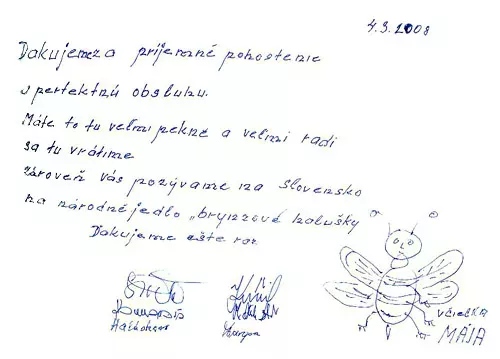 4.3.2008
Ďakujemza príjemné pohostenie
a perfektnú obsluhu.
Máte to tu veľmi pekné a veľmi radi
sa tu vrátime
zároveň vás pozývame na slovensko
na národné jedlo „bryнzové halušky
Ďakujeme ešte raz
včielka
MÁJA